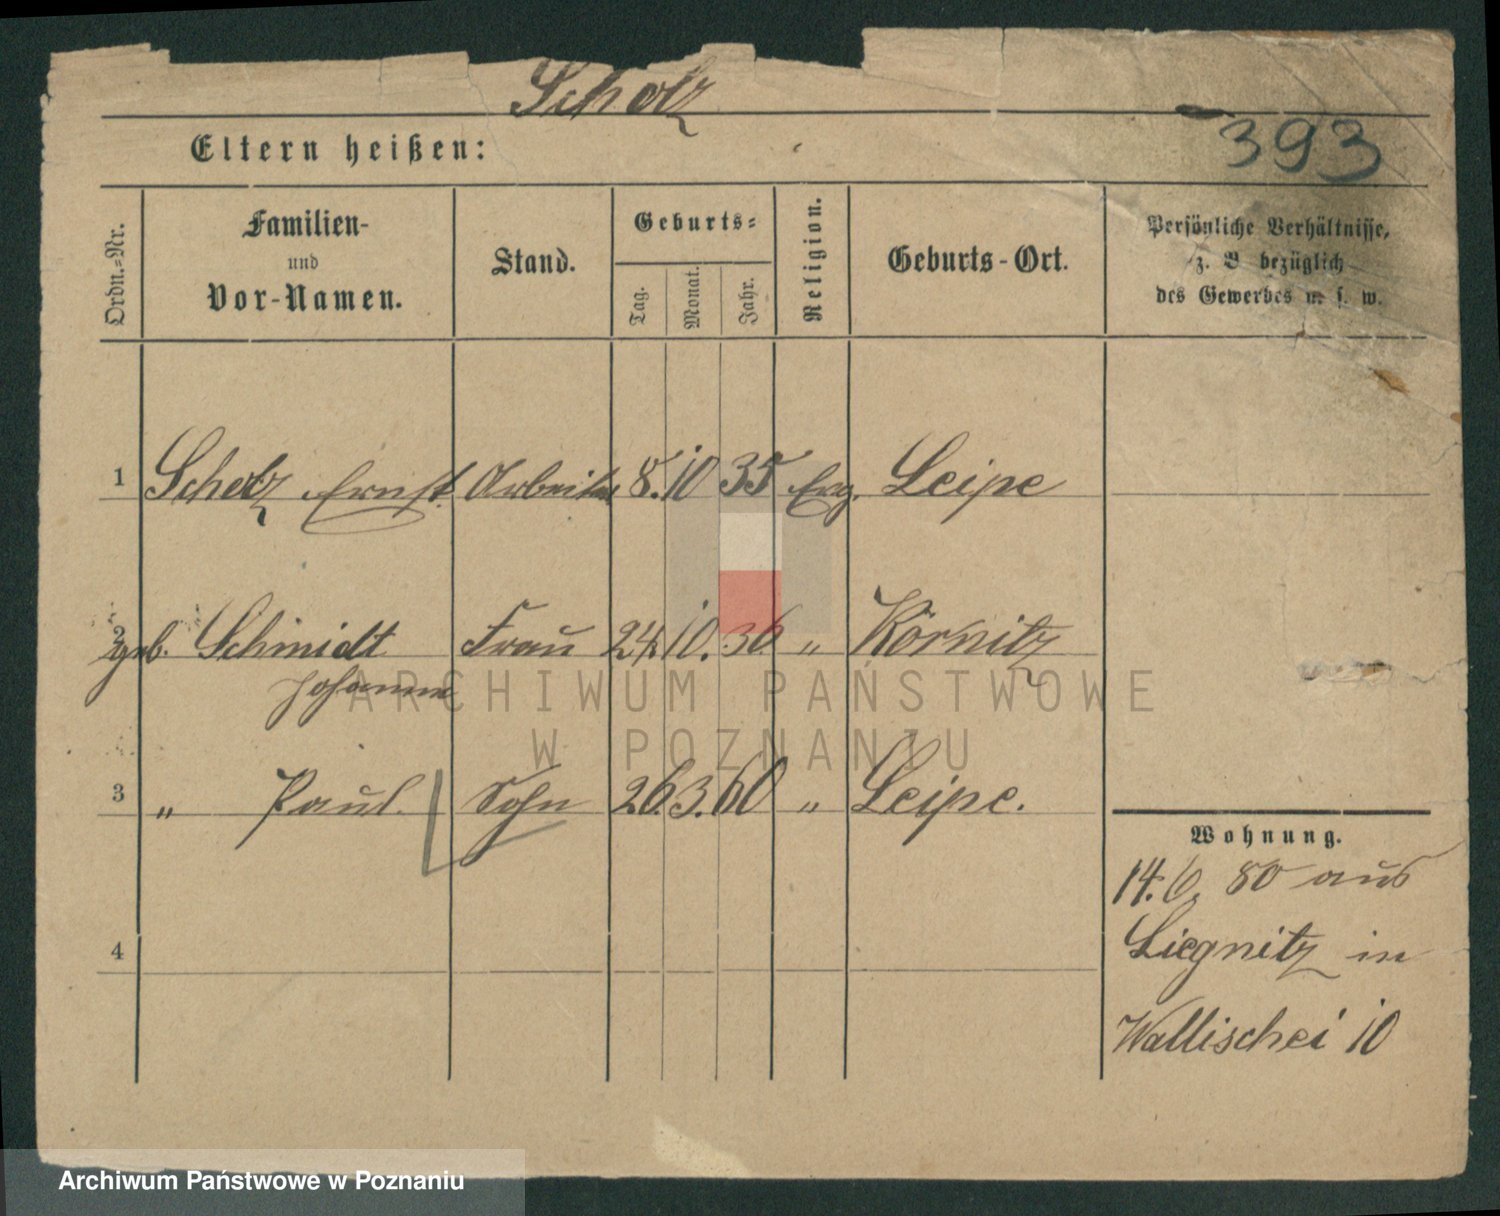 Scholz
393
Eltern heißen:
Ordn.-Nr.
Familien-
und
Vor-Namen.
Stand.
Geburts-
Tag.
Monat.
Jahr.
Religion.
Geburts-Ort.
Persönliche Verhältnisse,
z. B bezüglich
des Gewerbes u. s. w.
1 Scholz Ernst Arbeiter 8. 10 35 Evg. Leipe
2 geb. Schmidt Frau 24. 10. 36 " Körnitz
Johanna
3 " Paul. Sohn 26. 3. 60 " Leipe.
4
Wohnung.
14. 6. 80 aus
Liegnitz in
Wallischei 10
ARCHIWUM PAŃSTWOWE
W POZNANIU
Archiwum Państwowe w Poznaniu